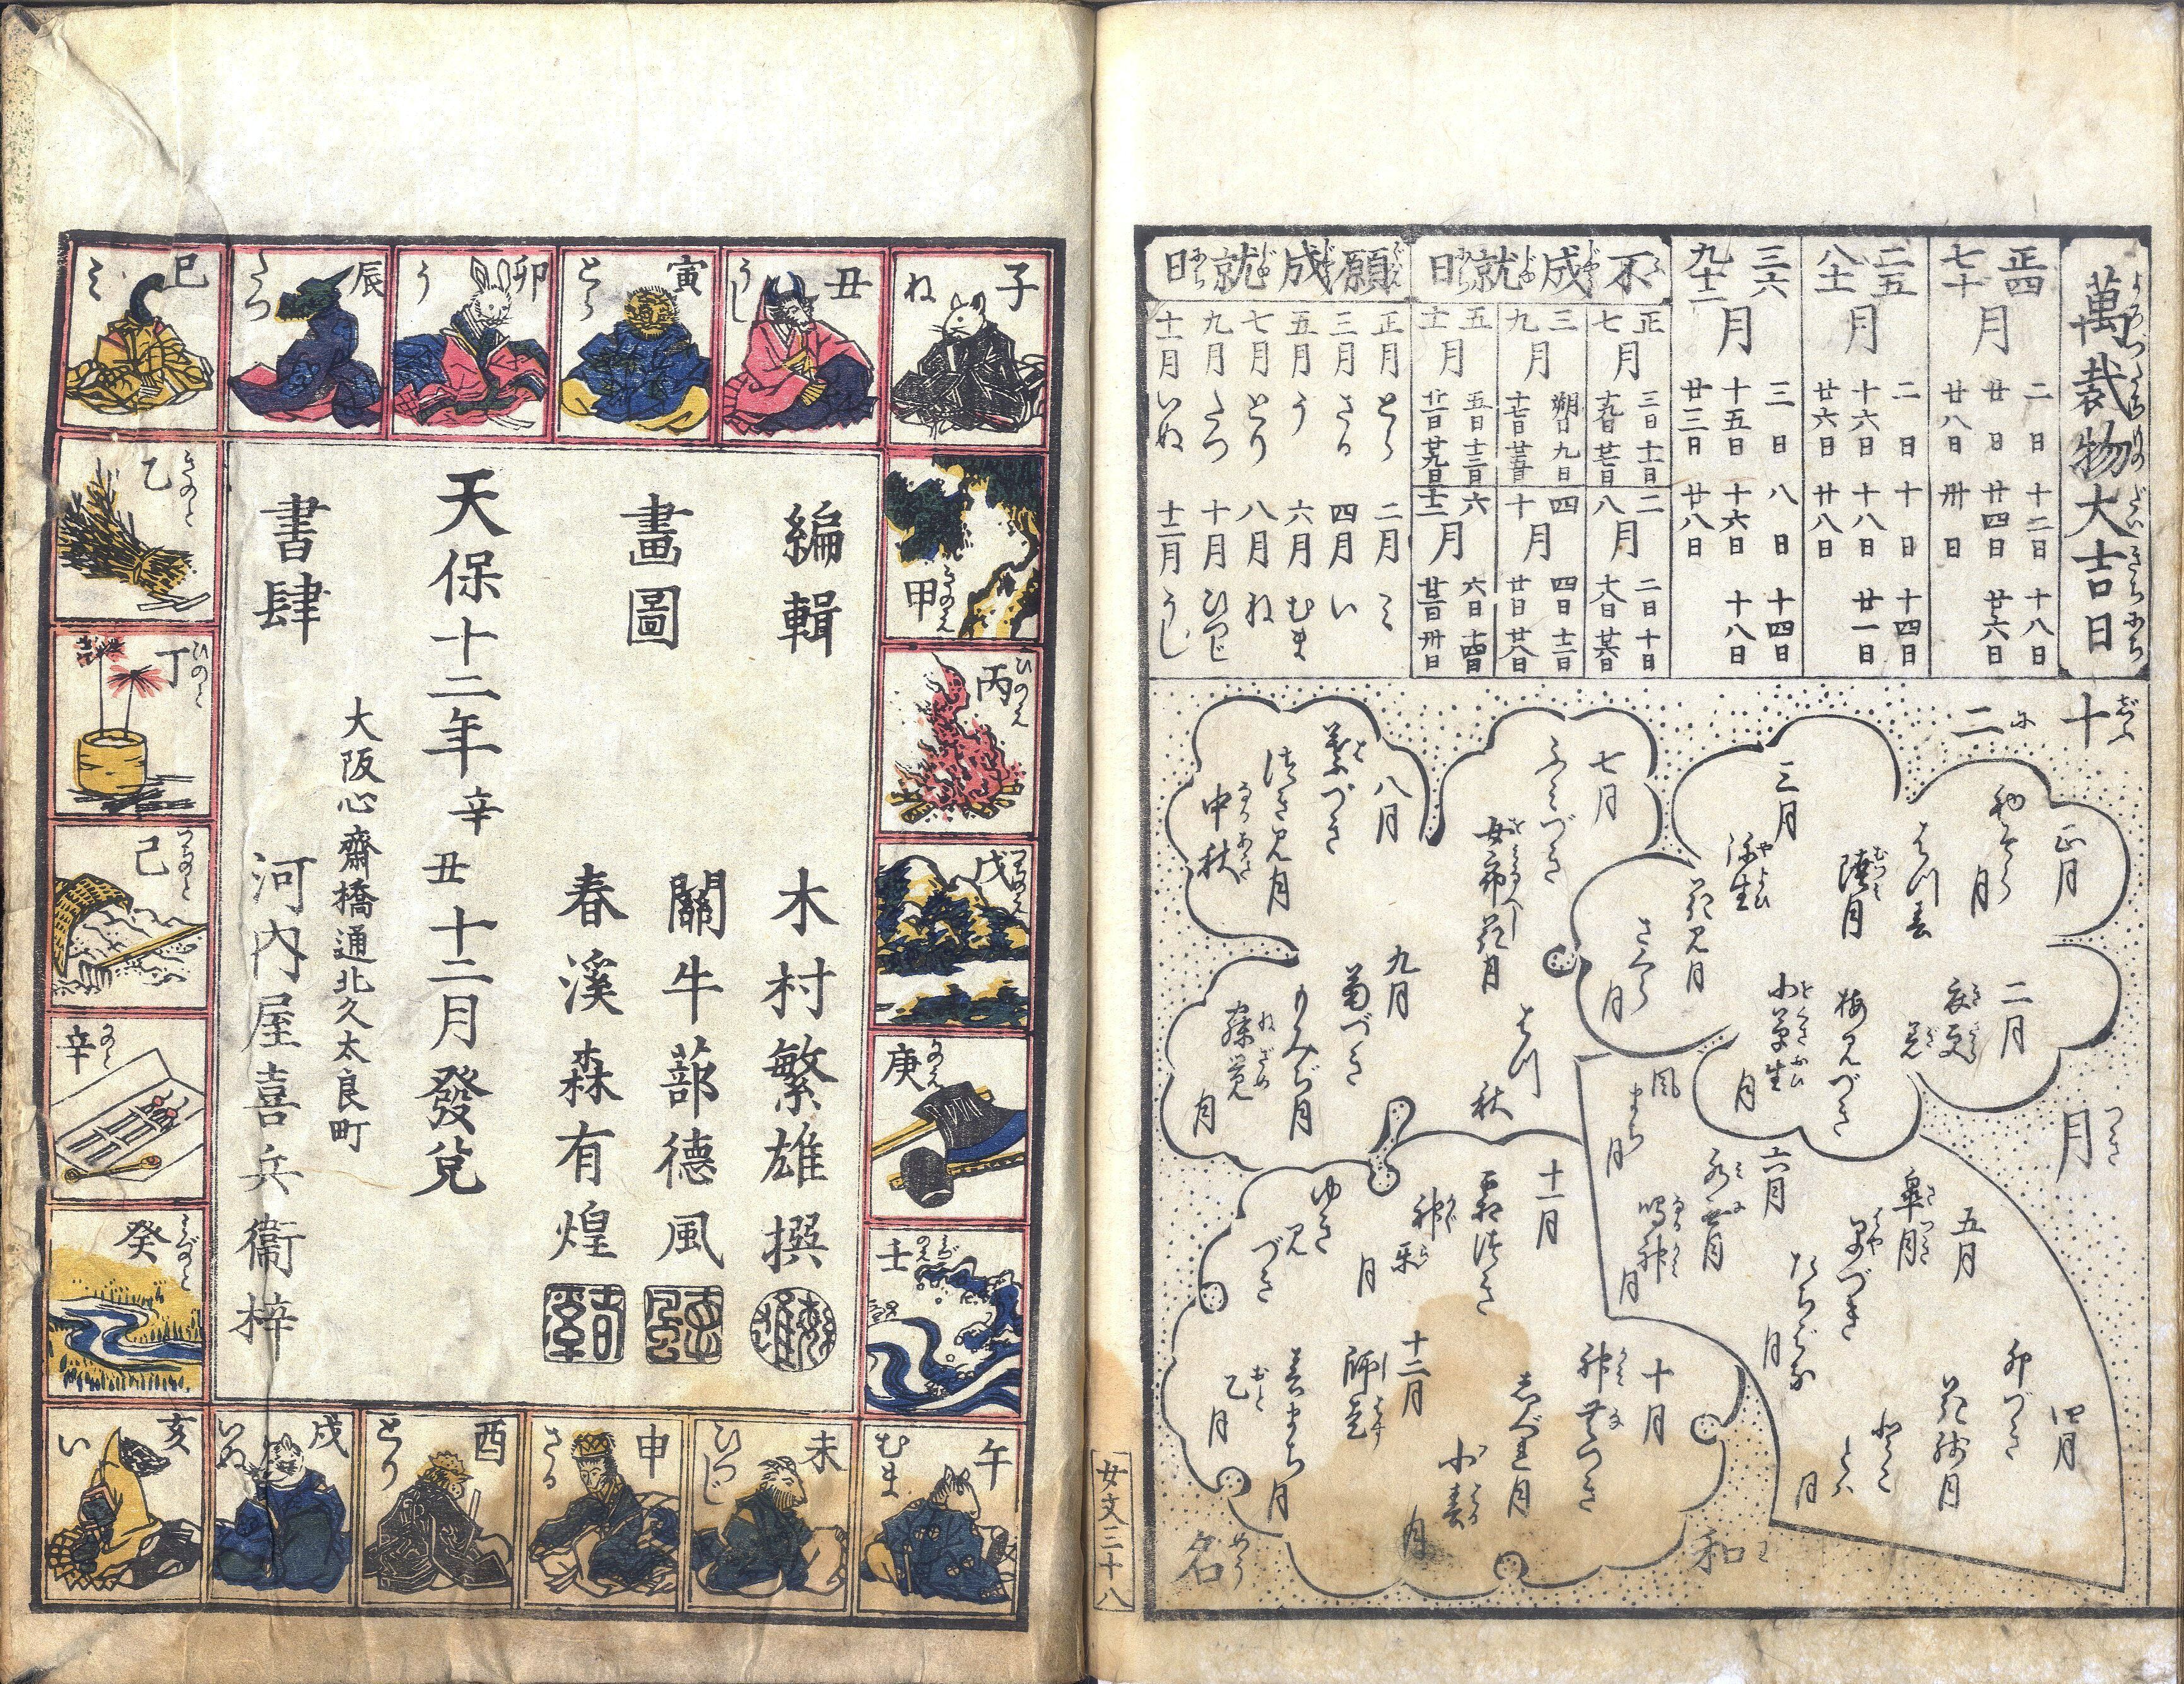 萬裁物大吉日
正四七十月
二日 十二日 十八日
廿日 廿四日 廿六日
廿八日 卅日
二五八十一月
二日 十日 十四日
十六日 十八日 廿一日
廿六日 廿八日
三六九十二月
三日 八日 十四日
十五日 十六日 十八日
廿三日 廿八日
不成就日
正七月
三日 十一日
十九日 廿七日
二八月
二日 十日
十八日 廿六日
三九月
朔日 九日
十七日 廿五日
四十月
四日 十二日
廿日 廿八日
五十一月
五日 十三日
廿一日 廿九日
六十二月
六日 十四日
廿二日 卅日
願成就日
正月 とら 二月 み
三月 さる 四月 い
五月 う 六月 むま
七月 とり 八月 ね
九月 たつ 十月 ひつじ
十一月 いぬ 十二月 うし
十二
月
和
名
正月
はつ春
睦月
二月
衣更
梅見づき
小草生月
三月
弥生
花見月
さくら月
四月
卯づき
花残月
五月
皐月
たちばな月
六月
風まち月
鳴神月
七月
ふみづき
女郎花月
はつ秋
八月
葉づき
月見月
中秋
九月
菊づき
もみぢ月
寐覚月
十月
しぐれ月
小春月
十一月
神楽月
ゆき見づき
十二月
師走
春まち月
乙月
女文三十八
子 ね
丑 うし
寅 とら
卯 う
辰 たつ
巳 み
甲 きのえ
乙 きのと
丙 ひのえ
丁 ひのと
戊 つちのえ
己 つちのと
庚 かのえ
辛 かのと
壬 みづのえ
癸 みづのと
午 むま
未 ひつじ
申 さる
酉 とり
戌 いぬ
亥 い
編輯 木村繁雄撰
畫圖 關牛蔀德風
春溪森有煌
天保十二年辛丑十二月發兌
大阪心齋橋通北久太良町
書肆 河内屋喜兵衞梓